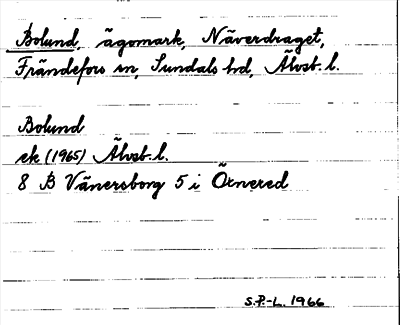 Bolund, ägomark, Näverdraget,
Frändefors sn, Sundals hd, Älvsb. l.
Bolund
ek (1965) Älvsb. l.
8 B Vänersborg 5 i Örnered
S.P.-L. 1966